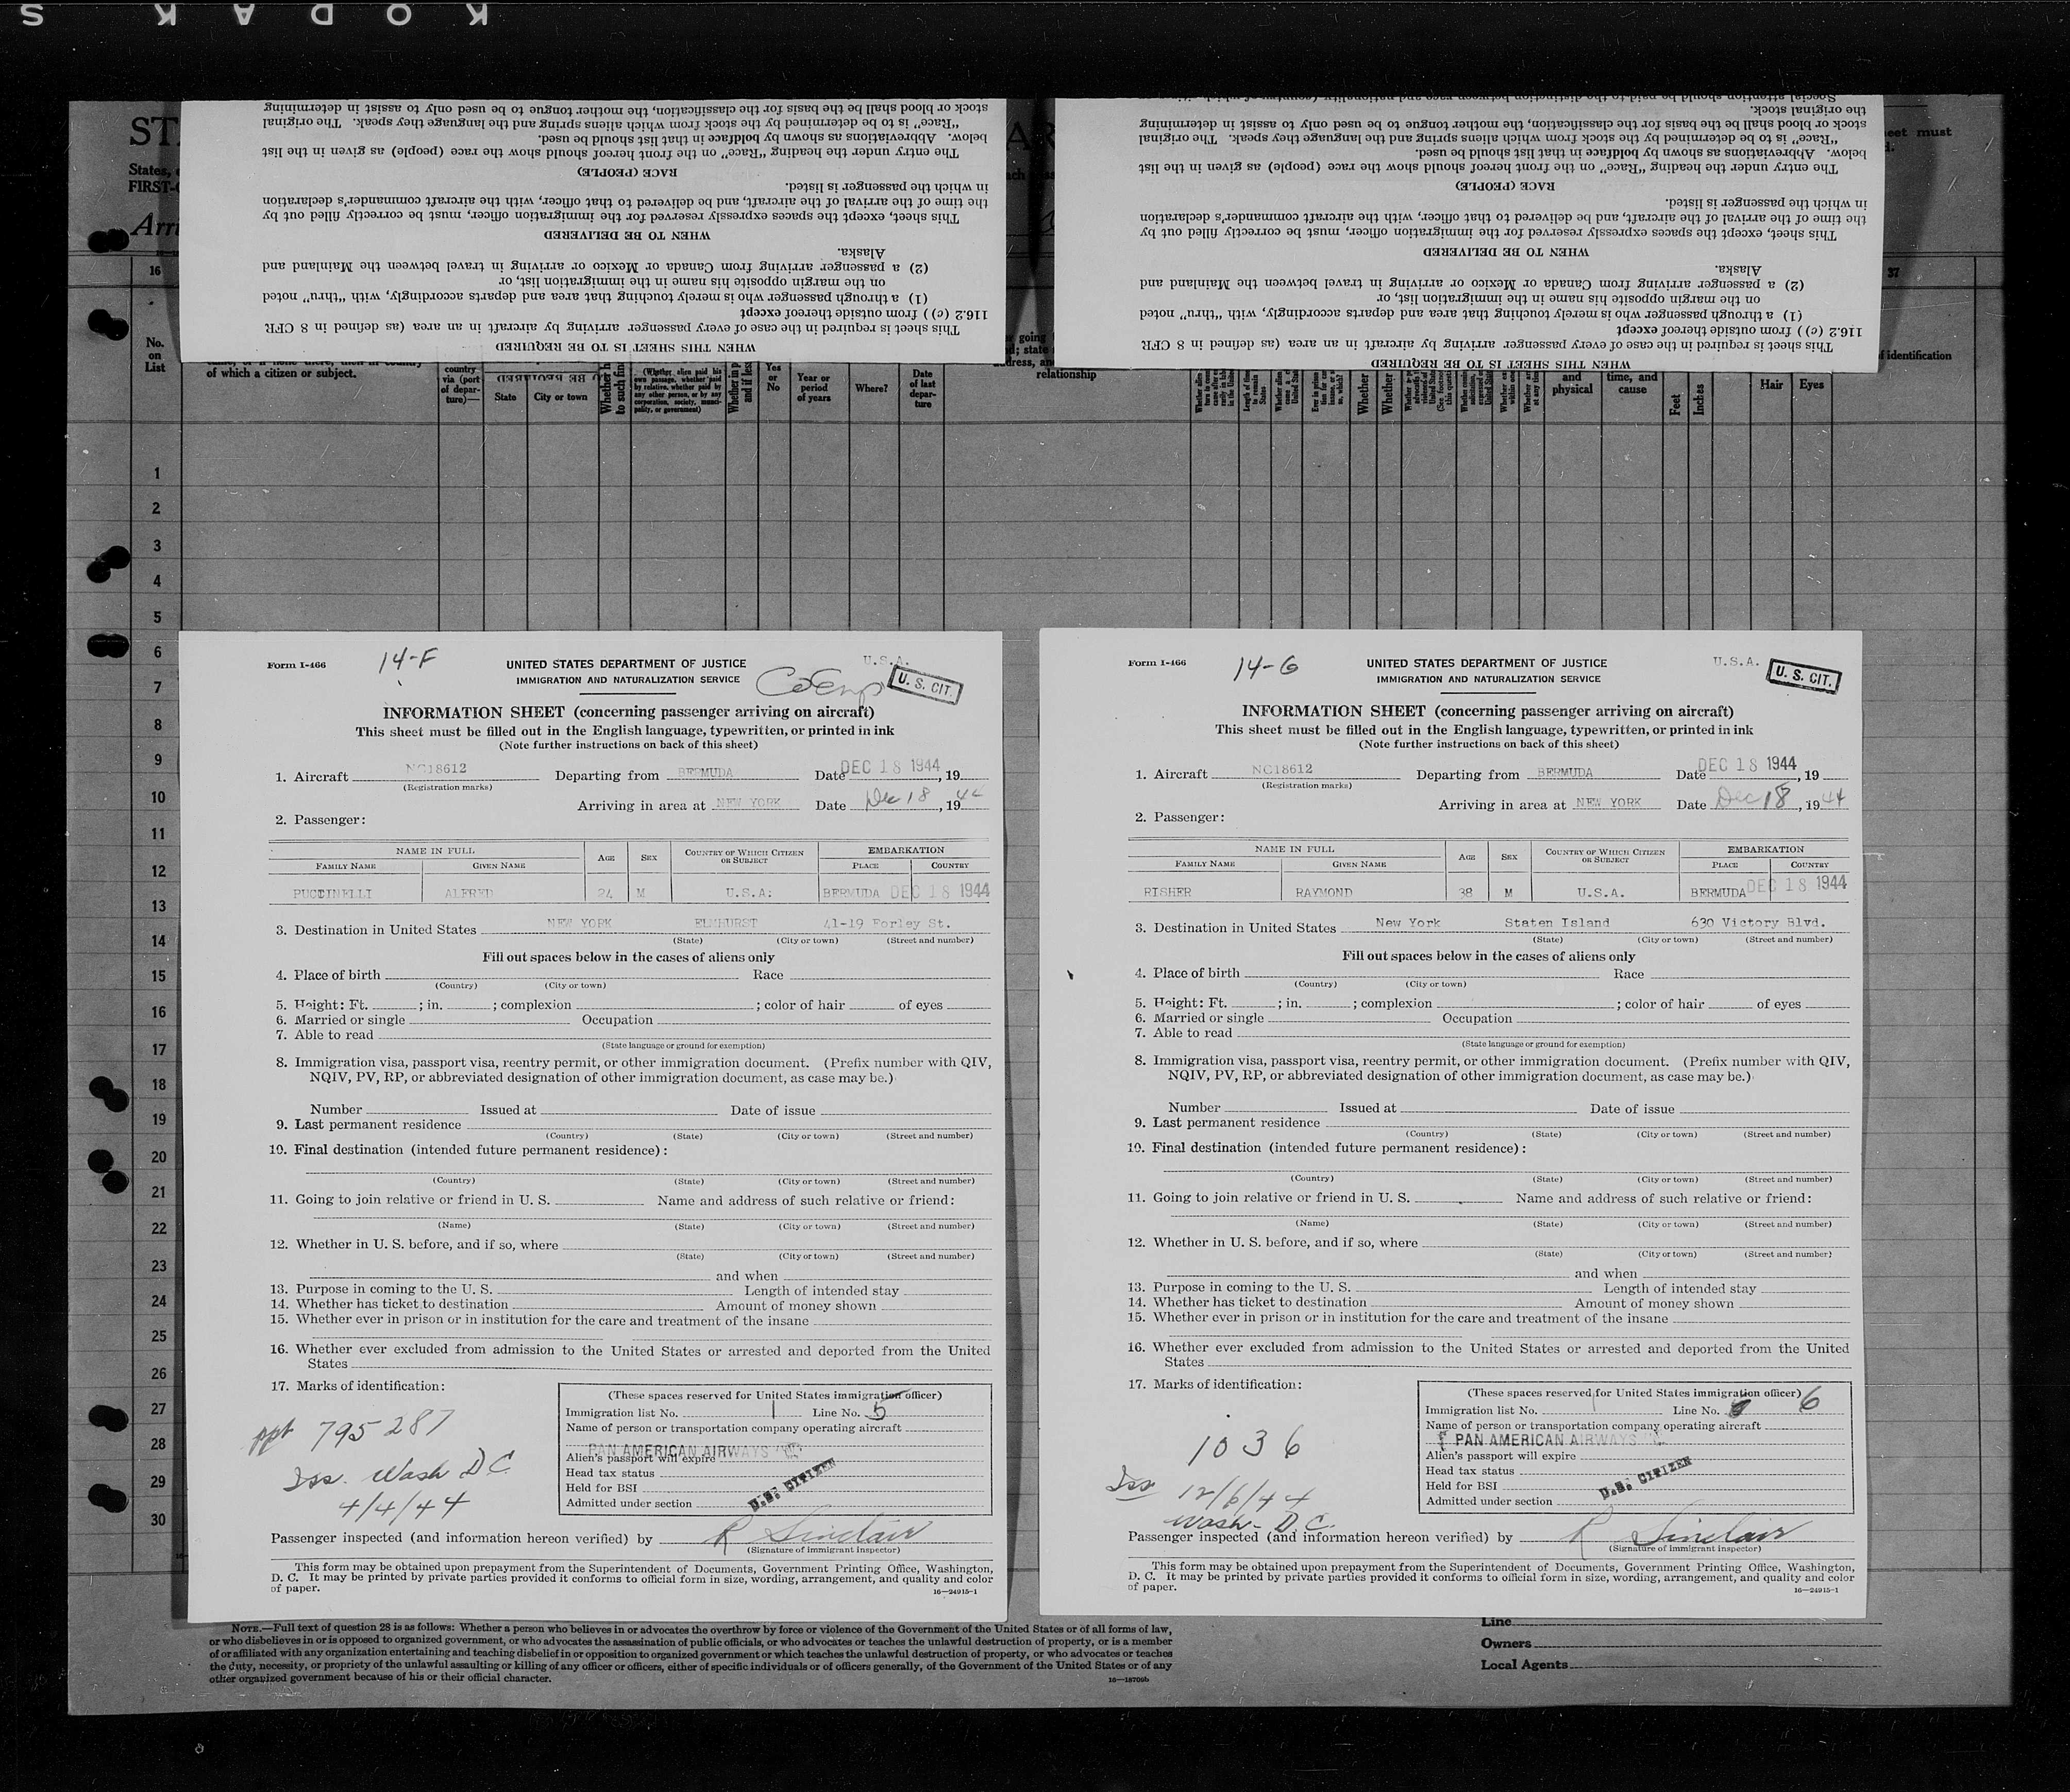 KODAK S
ST
States,
FIRST-
Arri
stock or blood shall be the basis for the classification, the mother tongue to be used only to assist in determining
"Race" is to be determined by the stock from which aliens spring and the language they speak. The original
below. Abbreviations as shown by boldface in that list should be used.
The entry under the heading "Race" on the front hereof should show the race (people) as given in the list
RACE (PEOPLE)
in which the passenger is listed.
the time of the arrival of the aircraft, and be delivered to that officer, with the aircraft commander's declaration
This sheet, except the spaces expressly reserved for the immigration officer, must be correctly filled out by
WHEN TO BE DELIVERED
Alaska.
(2) a passenger arriving from Canada or Mexico or arriving in travel between the Mainland and
on the margin opposite his name in the immigration list, or
(1) a through passenger who is merely touching that area and departs accordingly, with "thru" noted
116.2 (c) ) from outside thereof except
This sheet is required in the case of every passenger arriving by aircraft in an area (as defined in 8 CFR
WHEN THIS SHEET IS TO BE REQUIRED
Special attention should be paid to the distinction between race and nationality
the original stock.
stock or blood shall be the basis for the classification, the mother tongue to be used only to assist in determining
"Race" is to be determined by the stock from which aliens spring and the language they speak. The original
below. Abbreviations as shown by boldface in that list should be used.
The entry under the heading "Race" on the front hereof should show the race (people) as given in the list
RACE (PEOPLE)
in which the passenger is listed.
the time of the arrival of the aircraft, and be delivered to that officer, with the aircraft commander's declaration
This sheet, except the spaces expressly reserved for the immigration officer, must be correctly filled out by
WHEN TO BE DELIVERED
Alaska.
(2) a passenger arriving from Canada or Mexico or arriving in travel between the Mainland and
on the margin opposite his name in the immigration list, or
(1) a through passenger who is merely touching that area and departs accordingly, with "thru" noted
116.2 (c) ) from outside thereof except
This sheet is required in the case of every passenger arriving by aircraft in an area (as defined in 8 CFR
WHEN THIS SHEET IS TO BE REQUIRED
16
37
No.
on
List
of which a citizen or subject.
country
via (port
of depar-
ture)—
State
City or town
(Whether alien paid his
own passage, whether paid
by relative, whether paid by
any other person, or by any
corporation, society, munici-
pality, or government)
Yes
or
No
Year or
period
of years
Where?
Date
of last
depar-
ture
relationship
and
physical
time, and
cause
Feet
Inches
Hair
Eyes
of identification
1
2
3
4
5
6
7
8
9
10
11
12
13
14
15
16
17
18
19
20
21
22
23
24
25
26
27
28
29
30
Form I-466
14-F
UNITED STATES DEPARTMENT OF JUSTICE
U.S.A.
IMMIGRATION AND NATURALIZATION SERVICE
U. S. CIT.
INFORMATION SHEET (concerning passenger arriving on aircraft)
This sheet must be filled out in the English language, typewritten, or printed in ink
(Note further instructions on back of this sheet)
1. Aircraft NC18612 Departing from BERMUDA Date DEC 18 1944, 19
(Registration marks)
Arriving in area at NEW YORK Date Dec 18, 1944
2. Passenger:
NAME IN FULL
AGE SEX COUNTRY OF WHICH CITIZEN OR SUBJECT EMBARKATION
FAMILY NAME GIVEN NAME PLACE COUNTRY
PUCCINELLI ALFRED 24 M U.S.A: BERMUDA DEC 18 1944
3. Destination in United States NEW YORK ELMHURST 41-19 Forley St.
(State) (City or town) (Street and number)
Fill out spaces below in the cases of aliens only
4. Place of birth Race
(Country) (City or town)
5. Height: Ft. ; in. ; complexion ; color of hair of eyes
6. Married or single Occupation
7. Able to read
(State language or ground for exemption)
8. Immigration visa, passport visa, reentry permit, or other immigration document. (Prefix number with QIV,
NQIV, PV, RP, or abbreviated designation of other immigration document, as case may be.)
Number Issued at Date of issue
9. Last permanent residence
(Country) (State) (City or town) (Street and number)
10. Final destination (intended future permanent residence):
(Country) (State) (City or town) (Street and number)
11. Going to join relative or friend in U. S. Name and address of such relative or friend:
(Name) (State) (City or town) (Street and number)
12. Whether in U. S. before, and if so, where
(State) (City or town) (Street and number)
and when
13. Purpose in coming to the U. S. Length of intended stay
14. Whether has ticket to destination Amount of money shown
15. Whether ever in prison or in institution for the care and treatment of the insane
16. Whether ever excluded from admission to the United States or arrested and deported from the United
States
17. Marks of identification:
ppt 795287
Iss. Wash D C
4/4/44
(These spaces reserved for United States immigration officer)
Immigration list No. 1 Line No. 5
Name of person or transportation company operating aircraft
PAN AMERICAN AIRWAYS
Alien's passport will expire
Head tax status
Held for BSI
U.S. CITIZEN
Admitted under section
Passenger inspected (and information hereon verified) by R Sinclair
(Signature of immigrant inspector)
This form may be obtained upon prepayment from the Superintendent of Documents, Government Printing Office, Washington,
D. C. It may be printed by private parties provided it conforms to official form in size, wording, arrangement, and quality and color
of paper.
16—24915-1
Form I-466
14-G
UNITED STATES DEPARTMENT OF JUSTICE
U.S.A.
IMMIGRATION AND NATURALIZATION SERVICE
U. S. CIT.
INFORMATION SHEET (concerning passenger arriving on aircraft)
This sheet must be filled out in the English language, typewritten, or printed in ink
(Note further instructions on back of this sheet)
1. Aircraft NC18612 Departing from BERMUDA Date DEC 18 1944, 19
(Registration marks)
Arriving in area at NEW YORK Date Dec 18, 1944
2. Passenger:
NAME IN FULL
AGE SEX COUNTRY OF WHICH CITIZEN OR SUBJECT EMBARKATION
FAMILY NAME GIVEN NAME PLACE COUNTRY
RISHER RAYMOND 38 M U.S.A. BERMUDA DEC 18 1944
3. Destination in United States New York Staten Island 630 Victory Blvd.
(State) (City or town) (Street and number)
Fill out spaces below in the cases of aliens only
4. Place of birth Race
(Country) (City or town)
5. Height: Ft. ; in. ; complexion ; color of hair of eyes
6. Married or single Occupation
7. Able to read
(State language or ground for exemption)
8. Immigration visa, passport visa, reentry permit, or other immigration document. (Prefix number with QIV,
NQIV, PV, RP, or abbreviated designation of other immigration document, as case may be.)
Number Issued at Date of issue
9. Last permanent residence
(Country) (State) (City or town) (Street and number)
10. Final destination (intended future permanent residence):
(Country) (State) (City or town) (Street and number)
11. Going to join relative or friend in U. S. Name and address of such relative or friend:
(Name) (State) (City or town) (Street and number)
12. Whether in U. S. before, and if so, where
(State) (City or town) (Street and number)
and when
13. Purpose in coming to the U. S. Length of intended stay
14. Whether has ticket to destination Amount of money shown
15. Whether ever in prison or in institution for the care and treatment of the insane
16. Whether ever excluded from admission to the United States or arrested and deported from the United
States
17. Marks of identification:
1036
Iss 12/6/44
Wash- D C.
(These spaces reserved for United States immigration officer)
Immigration list No. 1 Line No. 6
Name of person or transportation company operating aircraft
PAN AMERICAN AIRWAYS
Alien's passport will expire
Head tax status
Held for BSI
U.S. CITIZEN
Admitted under section
Passenger inspected (and information hereon verified) by R Sinclair
(Signature of immigrant inspector)
This form may be obtained upon prepayment from the Superintendent of Documents, Government Printing Office, Washington,
D. C. It may be printed by private parties provided it conforms to official form in size, wording, arrangement, and quality and color
of paper.
16—24915-1
NOTE.—Full text of question 28 is as follows: Whether a person who believes in or advocates the overthrow by force or violence of the Government of the United States or of all forms of law,
or who disbelieves in or is opposed to organized government, or who advocates the assassination of public officials, or who advocates or teaches the unlawful destruction of property, or is a member
of or affiliated with any organization entertaining and teaching disbelief in or opposition to organized government or which teaches the unlawful destruction of property, or who advocates or teaches
the duty, necessity, or propriety of the unlawful assaulting or killing of any officer or officers, either of specific individuals or of officers generally, of the Government of the United States or of any
other organized government because of his or their official character.
16—18709b
Line
Owners
Local Agents